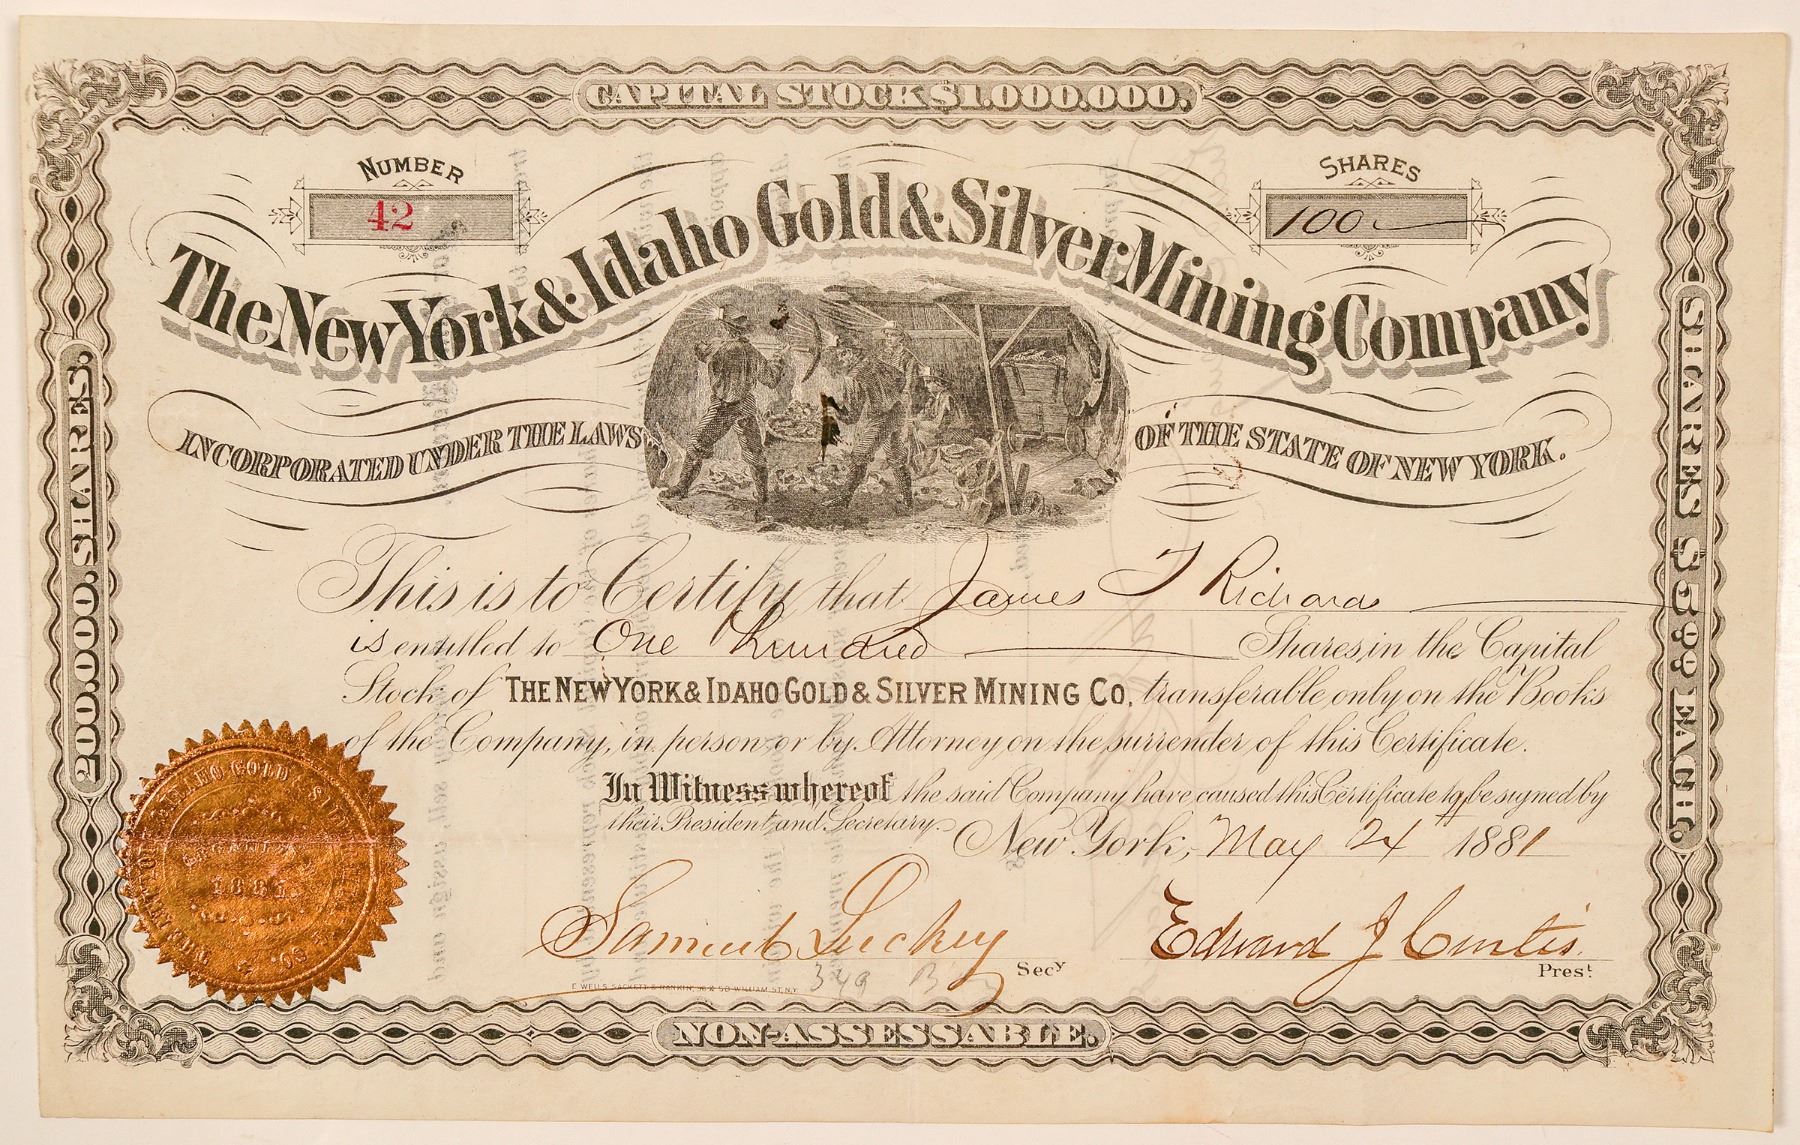 CAPITAL STOCK $1.000.000.
NUMBER
42
SHARES
100
The New York & Idaho Gold & Silver Mining Company
INCORPORATED UNDER THE LAWS OF THE STATE OF NEW YORK.
200.000. SHARES.
SHARES $5.00 EACH.
This is to Certify that James T Richards
is entitled to One Hundred Shares, in the Capital
Stock of THE NEW YORK & IDAHO GOLD & SILVER MINING CO. transferable only on the Books
of the Company, in person or by Attorney on the surrender of this Certificate.
In Witness whereof the said Company have caused this Certificate to be signed by
their President and Secretary.
New York, May 24 1881
Samuel Luckey Secy
Edward J Curtis. Prest
E WELLS SACKETT & RANKIN, 48 & 50 WILLIAM ST. N.Y.
349
IDAHO GOLD & SILV
ORGANIZED
1881
NON-ASSESSABLE.